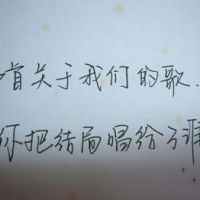 首关于我们的歌.
你把结局唱给了谁